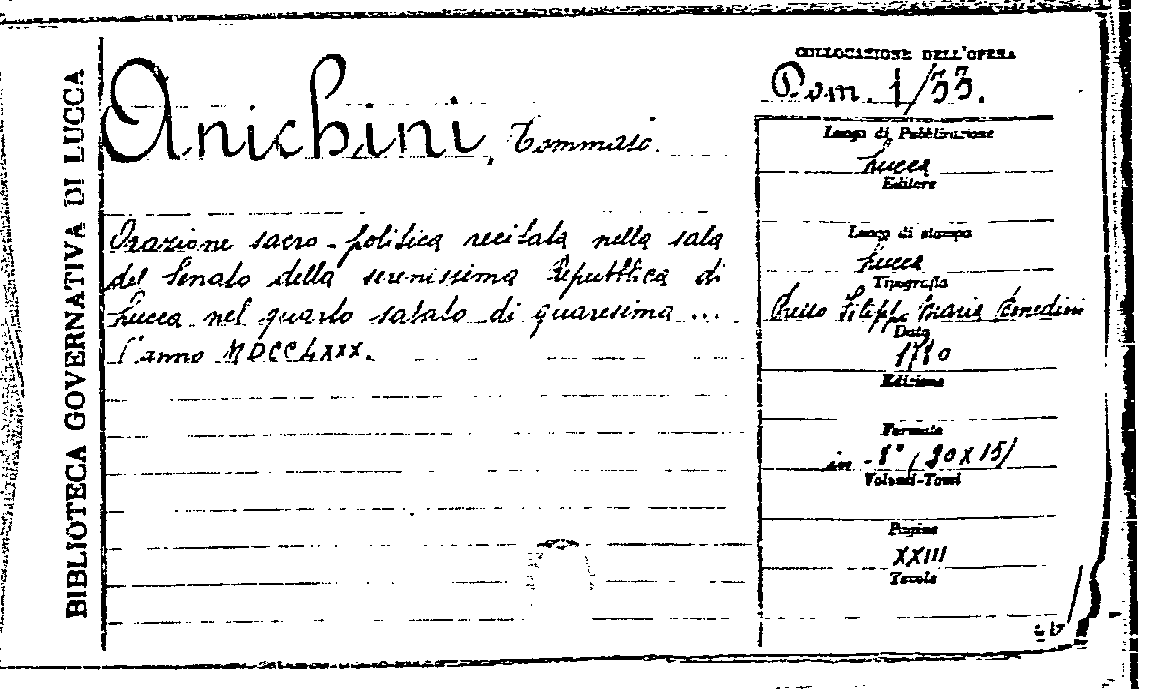 BIBLIOTECA GOVERNATIVA DI LUCCA
Anichini, Tommaso.
Orazione sacro-politica recitata nella sala
del Senato della serenissima Repubblica di
Lucca nel quarto sabato di quaresima ...
l'anno MDCCLXXX.
COLLOCAZIONE DELL'OPERA
Pam. 1/33.
Luogo di Pubblicazione
Lucca
Editore
Luogo di stampa
Lucca
Tipografia
Presso Filippo Maria Benedini
Data
1780
Edizione
Formato
in-8°, 20x15/
Volumi-Tomi
Pagine
XXIII
Tavole